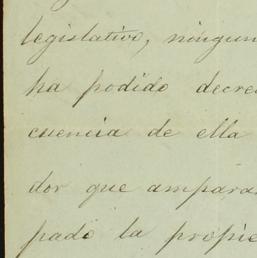 legislativo, ningun
ha podido decre
cuencia de ella
dor que ampara
pado la propie